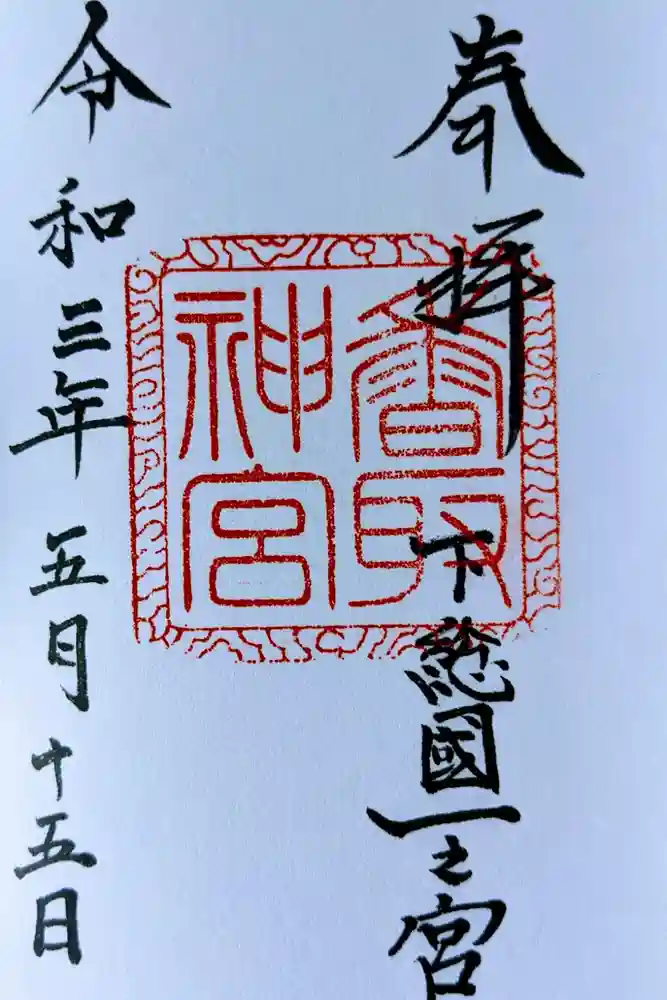 奉拝
下總國一之宮
香取
神宮
令和三年五月十五日